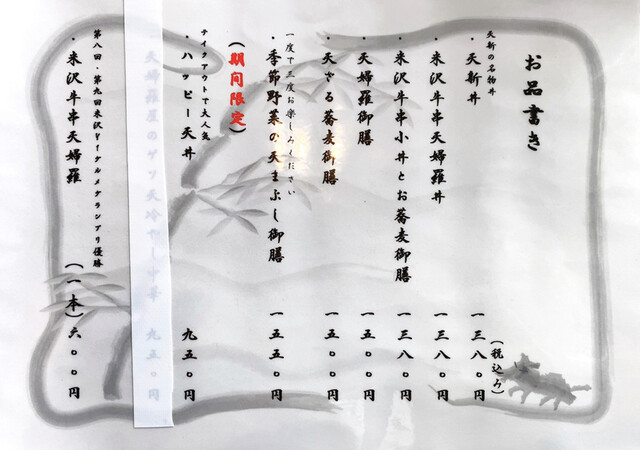 お品書き
(税込み)
天新の名物丼
・天新丼 一三八〇円
・米沢牛串天婦羅丼 一三八〇円
・米沢牛串小丼とお蕎麦御膳 一三八〇円
・天婦羅御膳 一五〇〇円
・天ざる蕎麦御膳 一五〇〇円
一度で三度お楽しみください
・季節野菜の天まぶし御膳 一五五〇円
(期间限定)
テイクアウトで大人気
・ハッピー天丼 九五〇円
・天婦羅屋のゲソ天冷やし中華 九五〇円
第八回・第九回米沢B級グルメグランプリ優勝
・米沢牛串天婦羅 (一本)六〇〇円